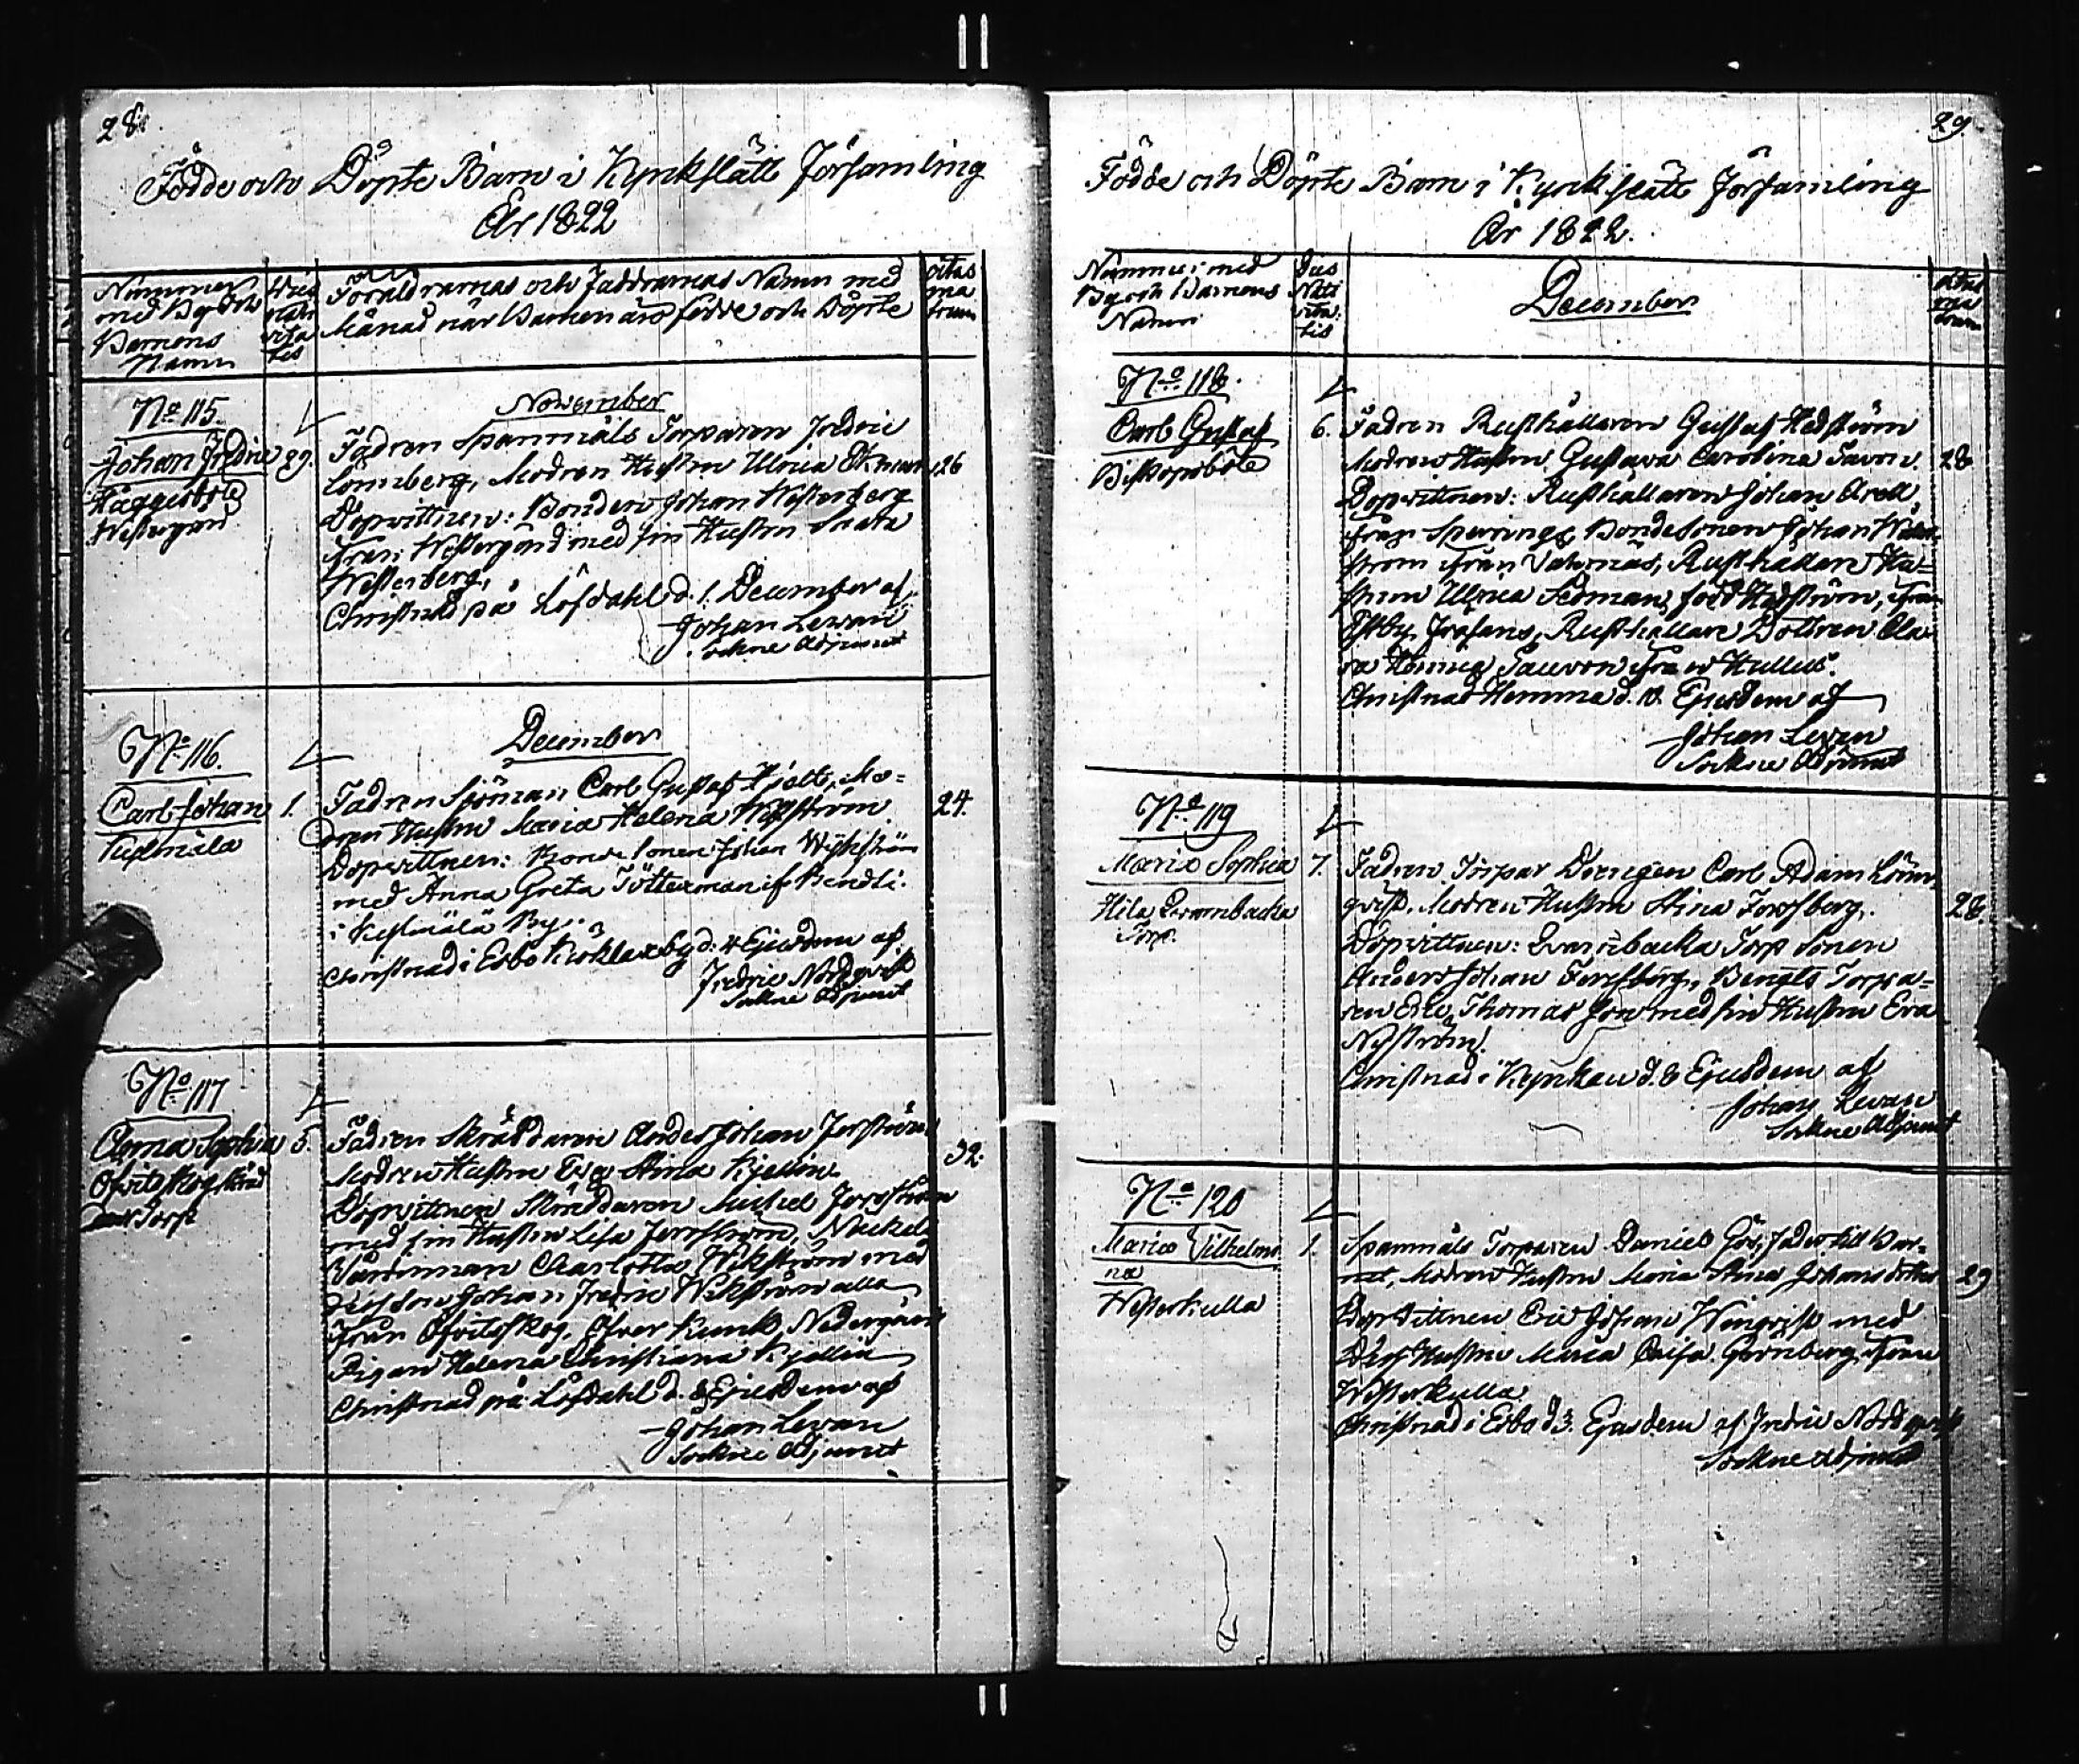 28.
Födde och Döpte Barn i Kyrkslätt Församling
År 1822
Nummer med By och Barnens Namn
Dies nati vita tis
Föräldrarnas och Faddrarnas Namn med
Månad när Barnen äro födde och Döpte
ætas ma trum
November
No 115.
Johan Fredric
Häggesböle
Westergård
29.
Fadren Spannmåls Torparen Fredric
Lönnberg, Modren Hustru Ulrica Ekman
26
Dopvittnen: Bonden Johan Westerberg
från Westergård med sin Hustru
Westerberg,
Christnad på Löfdahl d. 1. December af
Johan Levan
Sockne Adjunct
December
No 116.
Carl Johan
1.
Fadren Sjöman Carl Gustaf Hjelt, Mo=
dren Hustru Maria Helena
24.
Dopvittnen: Bonde Sonen Johan
med Anna Greta
i By.
Christnad i Esbo by d. 4 Ejusdem af
Fredric Nordqvist
Sockne Adjunct
No 117
Anna Sophia
Torp
5.
Fadren Skräddaren Anders Johan
Modren Hustru Eva Stina Kjellin
32.
Dopvittnen Skräddaren Michel
med sin Hustru Lisa
Charlotta Wikström med
Johan Fredric Wikström alla
från Öfvitsskog. Öfver Kurck Nedergård
Pigan Helena Christiana Kjellin
Christnad på Löfdahl d. 8 Ejusdem af
Johan Levan
Sockne Adjunct
29
Födde och Döpte Barn i Kyrkslätt Församling
År 1822.
Nummer med
By och Barnens
Namn
Dies
Nati
vita
tis
December
ætas
ma
trum
No 118.
Carl Gustaf
Biskopsböle
6.
Fadren Rusthållaren Gustaf Hedström
Modren Hustru Gustava Carolina
28
Dopvittnen: Rusthållaren Johan
från Sperrings, Bondesonen Johan
ström från Rusthållare Hu=
strun Ulrica Sedman född Hedström, från
Östby, Rusthållare Dottren Cla
ra från Hullus.
Christnad Hemma d. 10. Ejusdem af
Johan Levan
Sockne Adjunct
No 119
Maria Sophia
Hila Qvarnbacka
Torp.
7.
Fadren Torpar Drengen Carl Adam Lönn
qvist. Modren Hustru Stina Forsberg.
28.
Dopvittnen: Qvarnbacka Torp Sonen
Anders Johan Forsberg, Bengts Torpa=
ren Eric Thomas son med sin Hustru Eva
Nyström.
Christnad i Kyrkan d. 8 Ejusdem af
Johan Levan
Sockne Adjunct
No 120
Maria Vilhelmi
na
Westerkulla
1.
Spannmåls Torparen Daniel Gös, fader till Bar=
net, Modren Hustru Maria Stina Johans dotter
29
Dopvittnen Eric Johan Winqvist med
Dess Hustru Maria Caisa Grönberg från
Westerkulla
Christnad i Esbo d 3. Ejusdem af Fredric Nordqvist
Sockne Adjunct